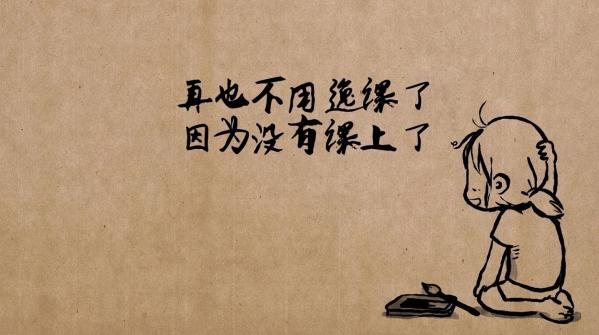 再也不用逸课了
因为没有课上了